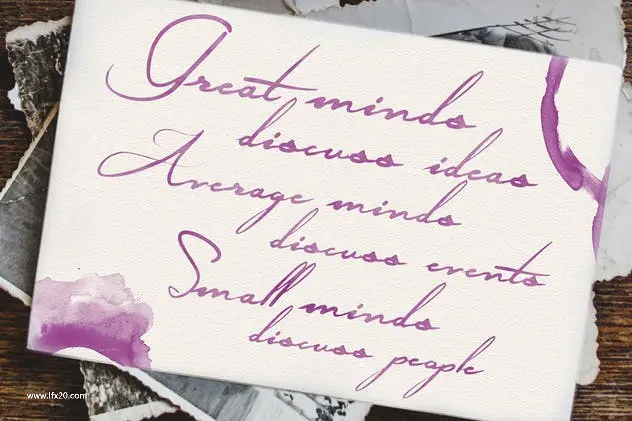 Great minds
discuss ideas
Average minds
discuss events
Small minds
discuss people
www.lfx20.com